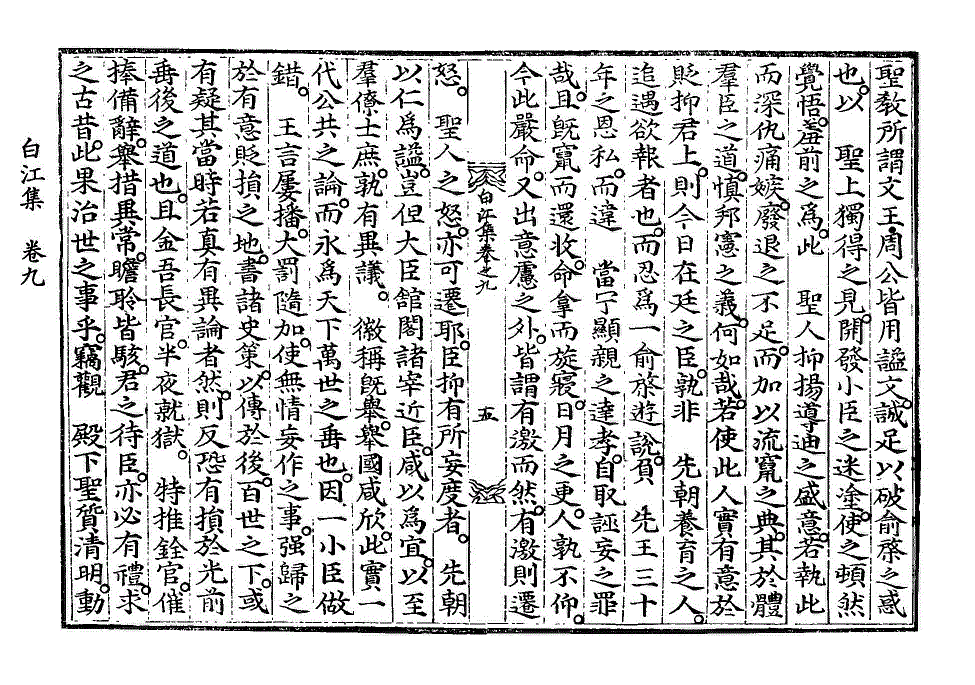 聖敎所謂文王周公皆用謚文。誠足以破俞棨之惑
也。以　聖上獨得之見。開發小臣之迷塗。使之頓然
覺悟。虛前之爲。此　聖人抑揚導迪之盛意。若執此
而深仇痛嫉。廢退之不足。而加以流竄之典。其於體
羣臣之道。愼邦憲之義。何如哉。若使此人實有意於
貶抑君上。則今日在廷之臣。孰非　先朝養育之人。
追遇欲報者也。而忍爲一俞棨遊說。負　先王三十
年之恩私。而違　當宁顯親之達孝。自取誣妄之罪
哉。且旣竄而還收。命拿而旋寢。日月之更。人孰不仰。
今此嚴命。又出意慮之外。皆謂有激而然。有激則遷
白江集卷之九
五
怒。　聖人之怒。亦可遷耶。臣抑有所妄度者。　先朝
以仁爲謚。豈但大臣館閣諸宰近臣。咸以爲宜。以至
羣僚士庶。孰有異議。　徽稱旣擧。擧國咸欣。此實一
代公共之論。而永爲天下萬世之垂也。因一小臣做
錯。　王言屢播。大罰隨加。使無情妄作之事。强歸之
於有意貶損之地。書諸史策。以傳於後。百世之下。或
有疑其當時若眞有異論者然。則反恐有損於光前
垂後之道也。且金吾長官。半夜就獄。　特推銓官。催
捧備辭。擧措異常。瞻聆皆駭。君之待臣。亦必有禮。求
之古昔。此果治世之事乎。竊觀　殿下聖質淸明。動
白江集　卷九